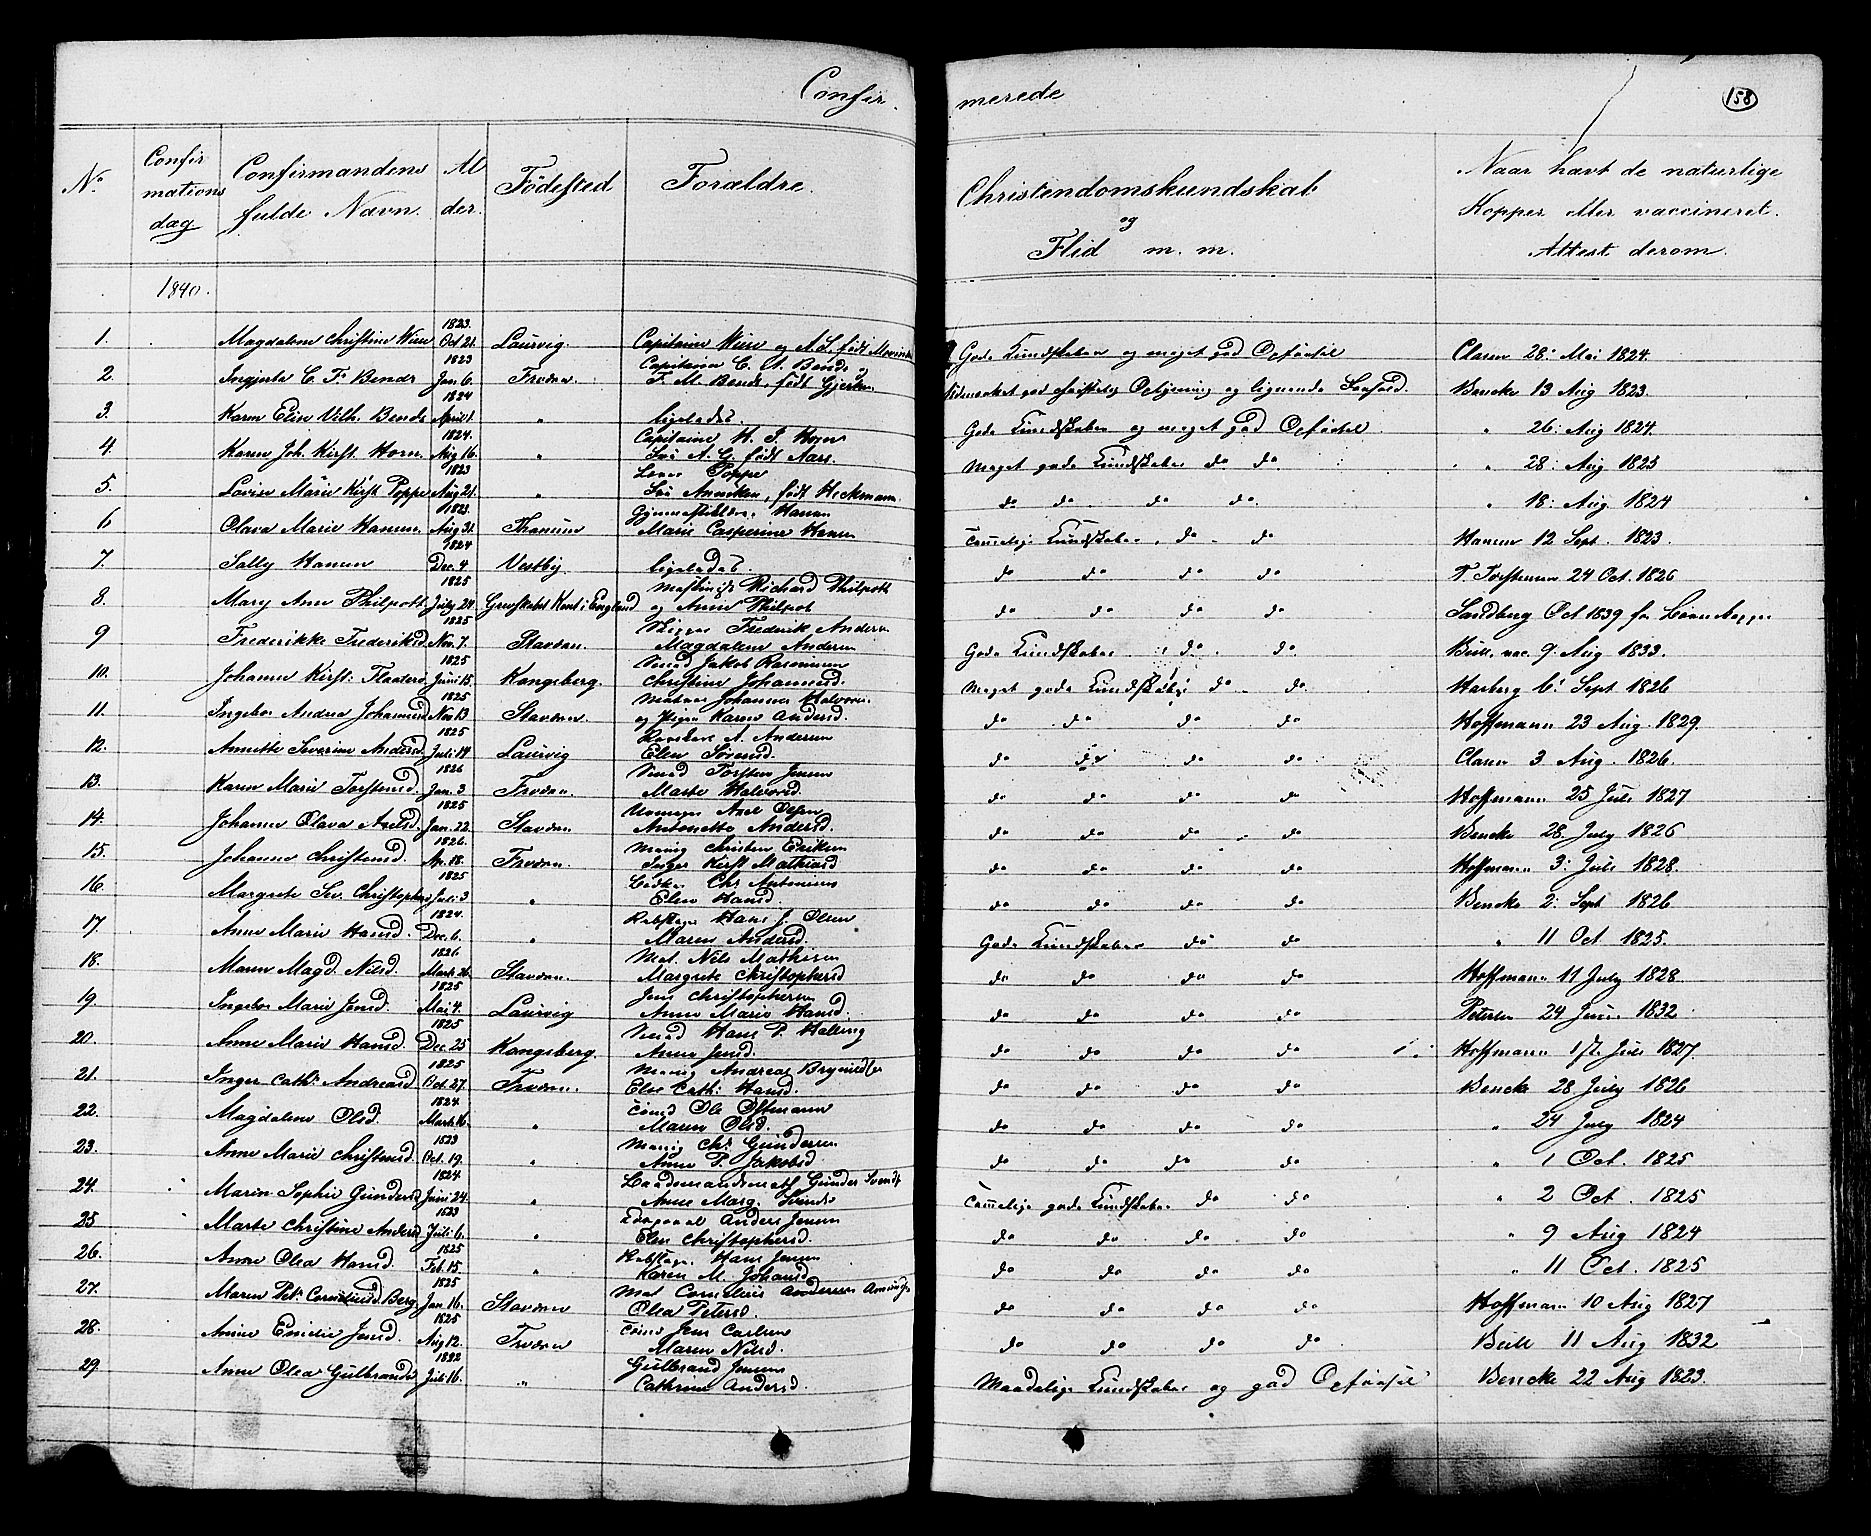 Confir
merede
158
No
Confir
mations
dag.
Confirmandens
fulde Navn.
Al
der.
Födested
Forældre.
Christendomskundskab
og
Flid m. m.
Naar havt de naturlige
Kopper eller vaccineret.
Attest derom.
1840.
1. Magdalene Christine Wiise 1823. Oct 21. Laurvig. Capitaine Wiise og födt Gode Kundskaber og meget god Opförsel Clasen 28. Mai 1824.
2. Ingjerte C. F. Bendz 1823 Jan. 6. Fredrn. Capitaine C. A. Bendz og F. M. Bendz, födt Gjerken christelig Oplysning og lignende Bencke 13 Aug 1823.
3. Karen Elise Vilh. Bendz 1824 April 1. " ligeledes. Gode Kundskaber og meget god Opförsel " 26. Aug 1824.
4. Karen Joh. Kirst. Horn 1824. Aug 16. " Capitaine H. J. Horn A. G. födt Aars. Meget gode Kundskaber do do " 28. Aug 1825
5. Lovise Marie Kirst. Poppe 1823 Aug 21. " Poppe Anneken, födt Heckmann do do do do " 18. Aug 1824
6 Olava Marie Hansen 1823. Aug 31. Thanum Hansen Marie Casperine Hansen Temmelige Kundskaber, do do Hansen 12 Sept. 1823.
7. Sally Hansen 1824 Dec. 4 Vestby. ligeledes. do do do do T. Torstensen 24 Oct. 1826
8. Mary Ann Philpott 1825 July 24. Grevskabet Kent i England Richard Philpott og Anne Philpot do do do do Sandberg Oct 1839
9 Frederikke Frederiksd 1825 Nov. 7. Stavern. Frederik Andersen Magdalene Andersen Gode Kundskaber do do Bull. vac. 9. Aug 1833.
10. Johanne Kirst. 1825 Juni 15. Kongsberg. Jakob Rasmussen Christine Johannesd. Meget gode Kundskaber do do Harberg 6. Sept 1826
11. Ingebor Andrea Johannesd 1825 Nov 13 Stavern. Matros Johannes Halvorsen og Pigen Karen Andersd. do do do do Hoffmann 23 Aug. 1829.
12. Annette Severine Andersd. 1825 Juli 14 Laurvig A. Andersen Elen Sörensd. do do do do Clasen 3 Aug. 1826.
13. Karen Marie Torstensd. 1826 Jan. 3 Fredrn. Torsten Jensen Marte Halvorsd. do do do do Hoffmann 25 Juli 1827
14. Johanne Olava Axelsd. 1825 Jan. 22. Stavern Axel Olsen Antonette Andersd. do do do do Bencke 28. July 1826
15. Johanne Christensd. 1826. Ap. 18. Fredrn. Christen Eriksen Inger Kirst Mathiasd do do do do Hoffmann 3. Juli 1828.
16. Margrete Sev. Christophersd 1825 Juli 3 " Chr Antonsen Elen Hansd. do do do do Bencke 2. Sept 1826
17. Anne Marie Hansd. 1824. Dec. 6. " Hans J. Olsen Maren Andersd. Gode Kundskaber do do " 11 Oct. 1825.
18. Maren Magd. Nilsd. 1826. Marts 26 Stavern. Mat. Nils Mathisen Margrete Christophersd do do do do Hoffmann 11 July 1828
19. Ingebor Marie Jensd. 1825 Mai 4. Laurvig Jens Christophersen Anne Marie Hansd. do do do do Petersen 24 Juni 1832
20. Anne Marie Hansd. 1825 Dec 25 Kongsberg. Hans P. Halling Anne Jensd. do do do do Hoffmann 17. Juli 1827.
21. Inger Cath. Andreasd 1825 Oct. 27. Fredrn. Andreas Else Cath. Hansd. do do do do Bencke 28 July 1826
22. Magdalene Olsd. 1824 Marts 16. " Tömd Ole Ostmann Maren Olsd. do do do do " 24 July 1824
23. Anne Marie Christensd. 1823 Oct. 19. " Chr. Gundersen Anne P. Jakobsd do do do do " 1 Oct. 1825
24. Maren Sophie Gundersd 1824. Juni 24. " Gunder Svends. Anne Marg. Svends Temmelige gode Kundskaber do do " 2 Oct. 1825
25 Marte Christine Andersd 1823 Juli 6. " Anders Jensen Elen Christophersd. do do do do " 9 Aug 1824
26. Anne Olea Hansd. 1825 Feb. 15. " Hans Jensen Karen M. Johansd do do do do " 11 Oct. 1825
27. Maren Pet. Corneliusd. Berg. 1825 Jan. 16. Stavern Mat Cornelius Andersen Olea Petersd. do do do do Hoffmann 10 Aug 1827
28. Anine Emilie Jensd. 1825 Aug 12. Fredrn Tömd Jens Carlsen Maren Nilsd. do do do do Bull 11 Aug 1832
29 Anne Olea Gulbrands 1822 Juli 16. " Gulbrand Jensen Cathrine Andersd. Maadelige Kundskaber og god Opförsel Bencke 22 Aug 1823.